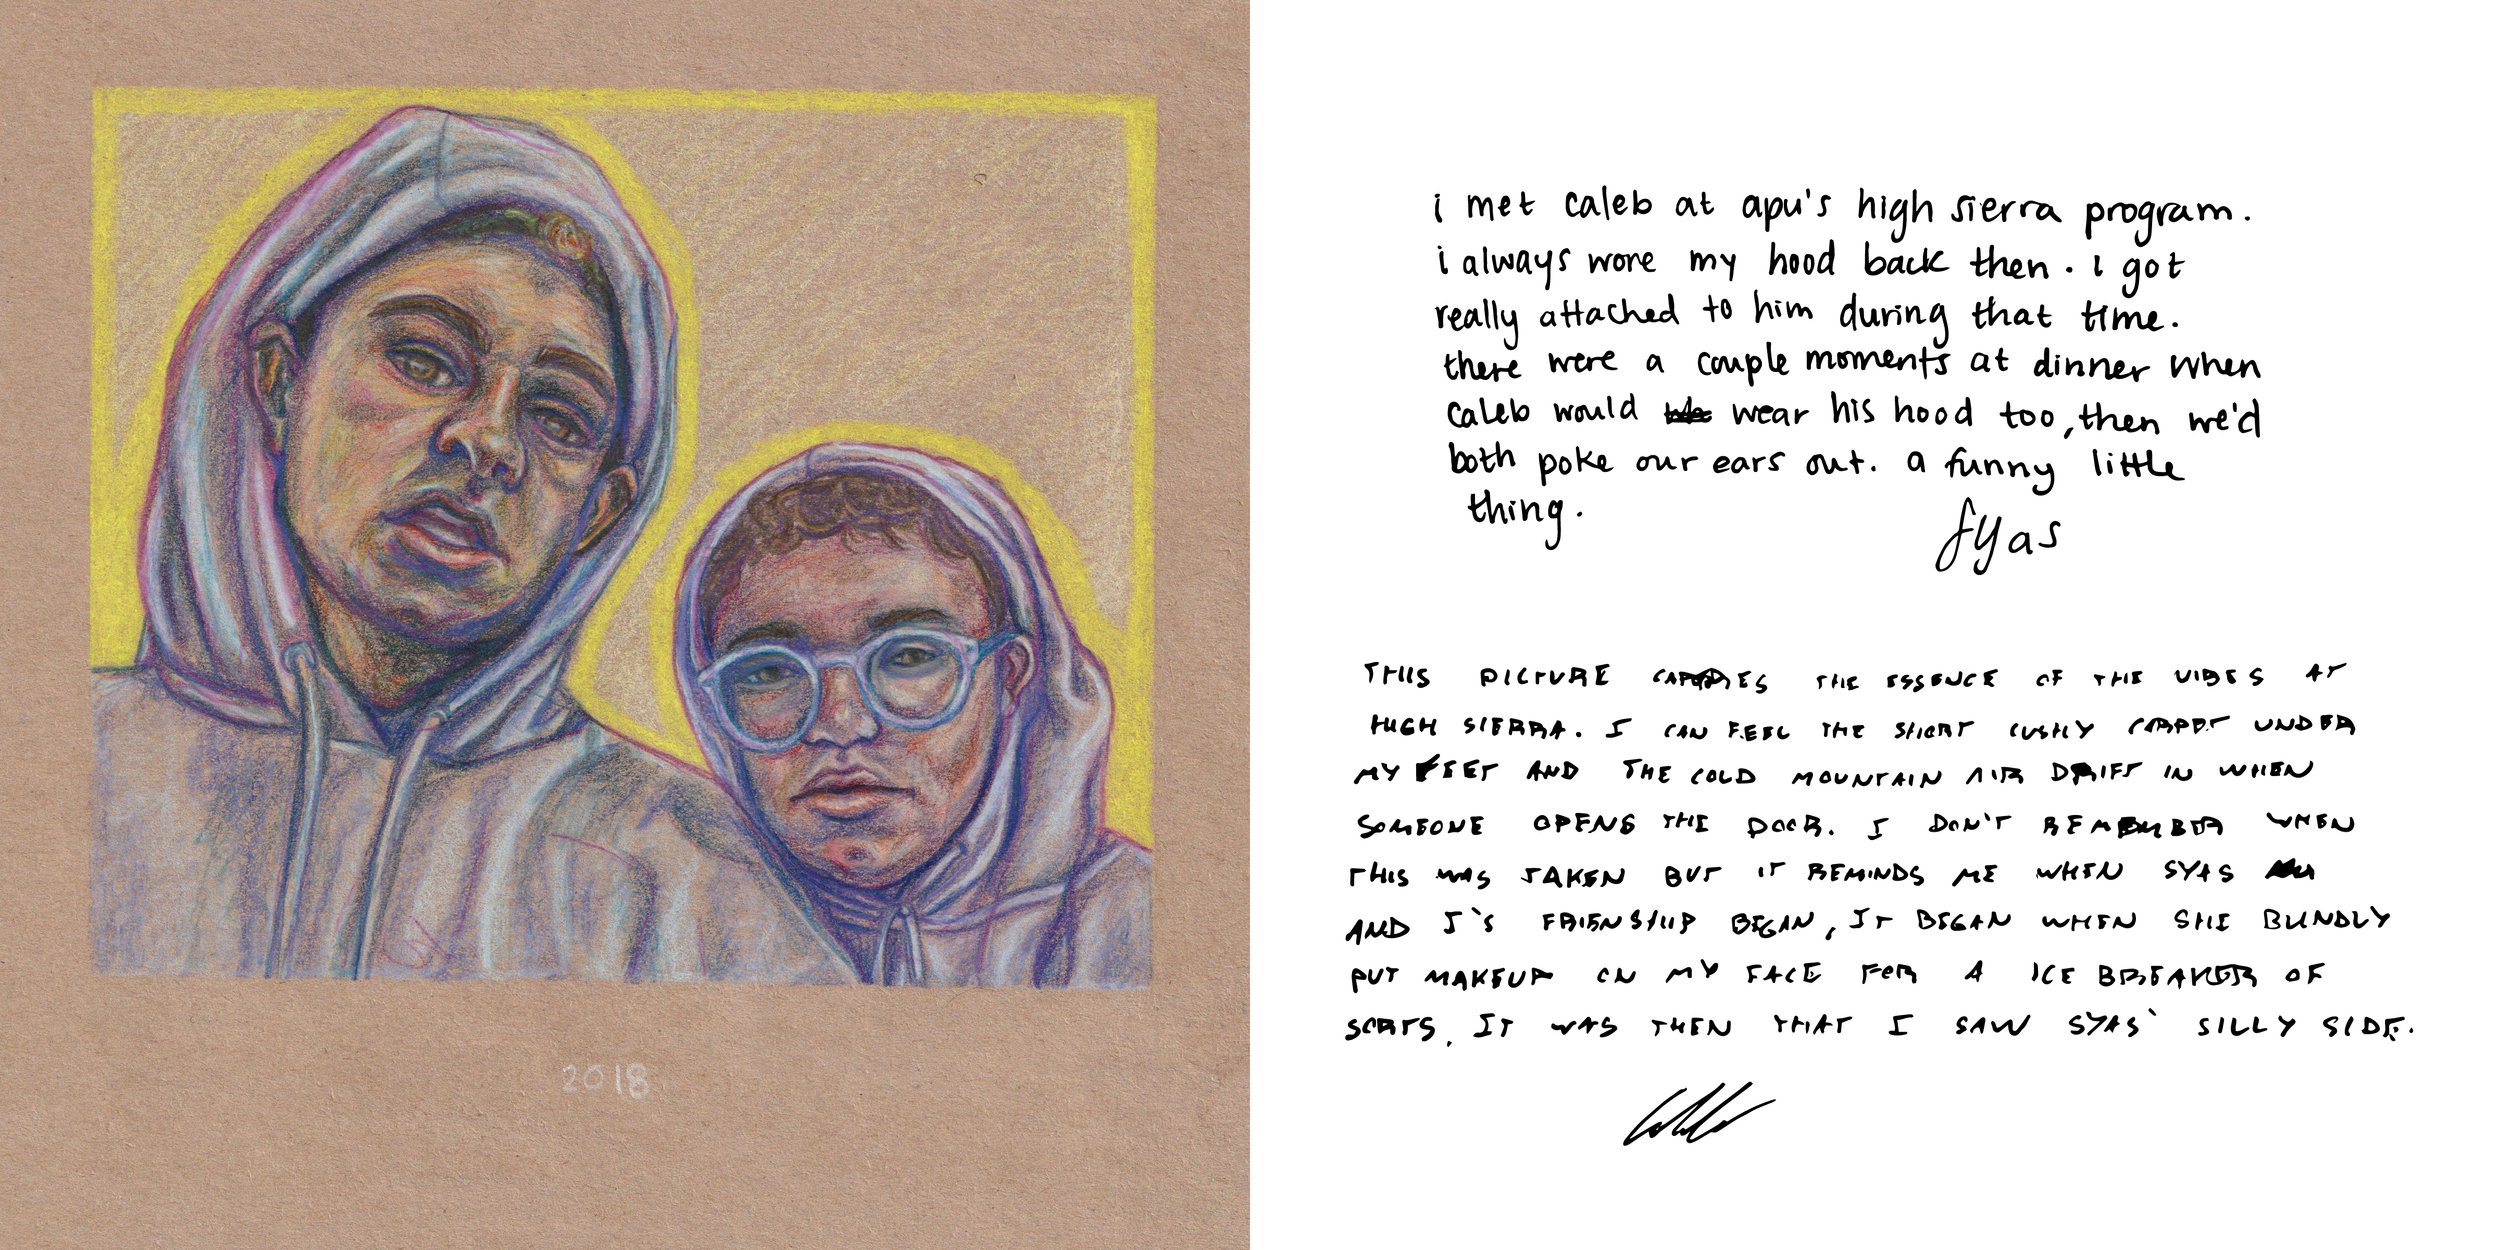 2018
i met caleb at apu's high sierra program.
i always wore my hood back then. i got
really attached to him during that time.
there were a couple moments at dinner when
caleb would wear his hood too, then we'd
both poke our ears out. a funny little
thing.
syas
THIS PICTURE THE ESSENCE OF THE VIBES AT
HIGH SIERRA. I CAN FEEL THE SHORT CUSHY CARPET UNDER
MY FEET AND THE COLD MOUNTAIN AIR DRIFT IN WHEN
SOMEONE OPENS THE DOOR. I DON'T REMEMBER WHEN
THIS WAS TAKEN BUT IT REMINDS ME WHEN SYAS
AND I'S FRIENSHIP BEGAN, IT BEGAN WHEN SHE BLINDLY
PUT MAKEUP ON MY FACE FOR A ICE BREAKER OF
SORTS. IT WAS THEN THAT I SAW SYAS' SILLY SIDE.